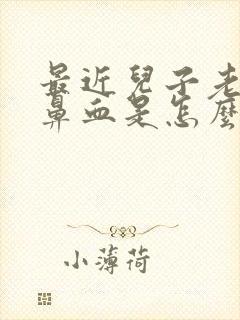 最近兒子老
鼻血是怎麼
小薄荷